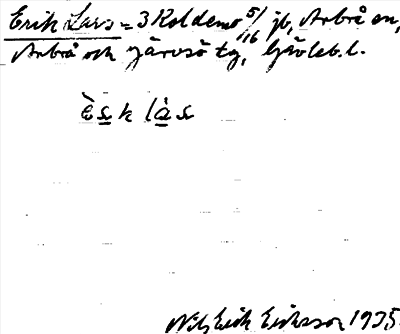 Erik Lars = 3 Koldemo 5/16 jb, Arbrå sn,
Arbrå och Järvsö tg, Gävleb. l.
è s k l à s
Nils Erik Eriksson 1935